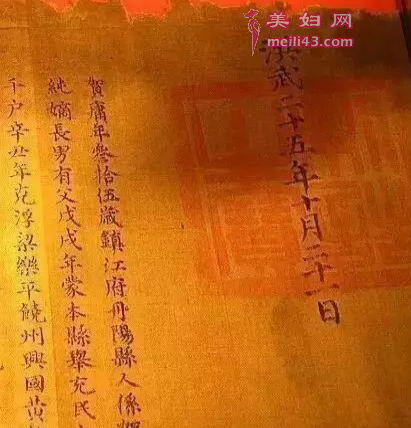 美妇网
meili43.com
洪武二十五年十月二十一日
賀庸年叁拾伍歲鎮江府丹陽縣人係
純嫡長男有父戊戌年蒙本縣舉充民
千户辛丑年克浮梁樂平饒州興國黃